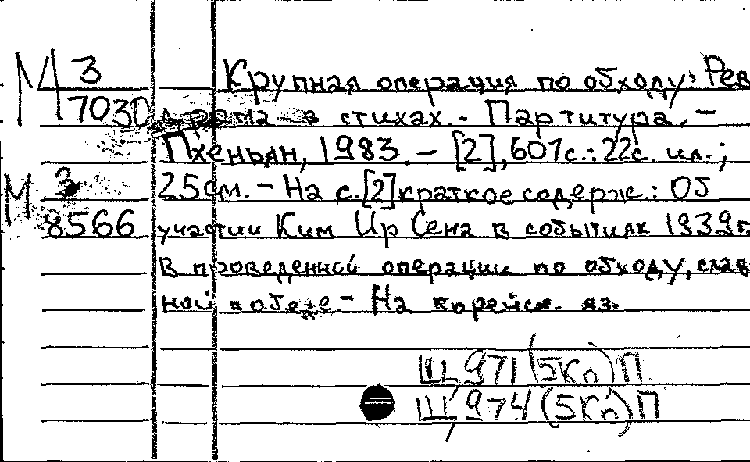 М 3
7030
Крупная операция по обходу: Рев.
драма в стихах. - Партитура. -
Пхеньян, 1983. - [2], 601 с.: 22 с. ил.;
М 3
8566
25 см. - На с. [2] краткое содерж.: Об
участии Ким Ир Сена в событиях 1939 г.
В проведенной операции по обходу, слав
ной победе. - На корейск. яз.
Щ,971(5Кп)П
Щ,974(5Кп)П